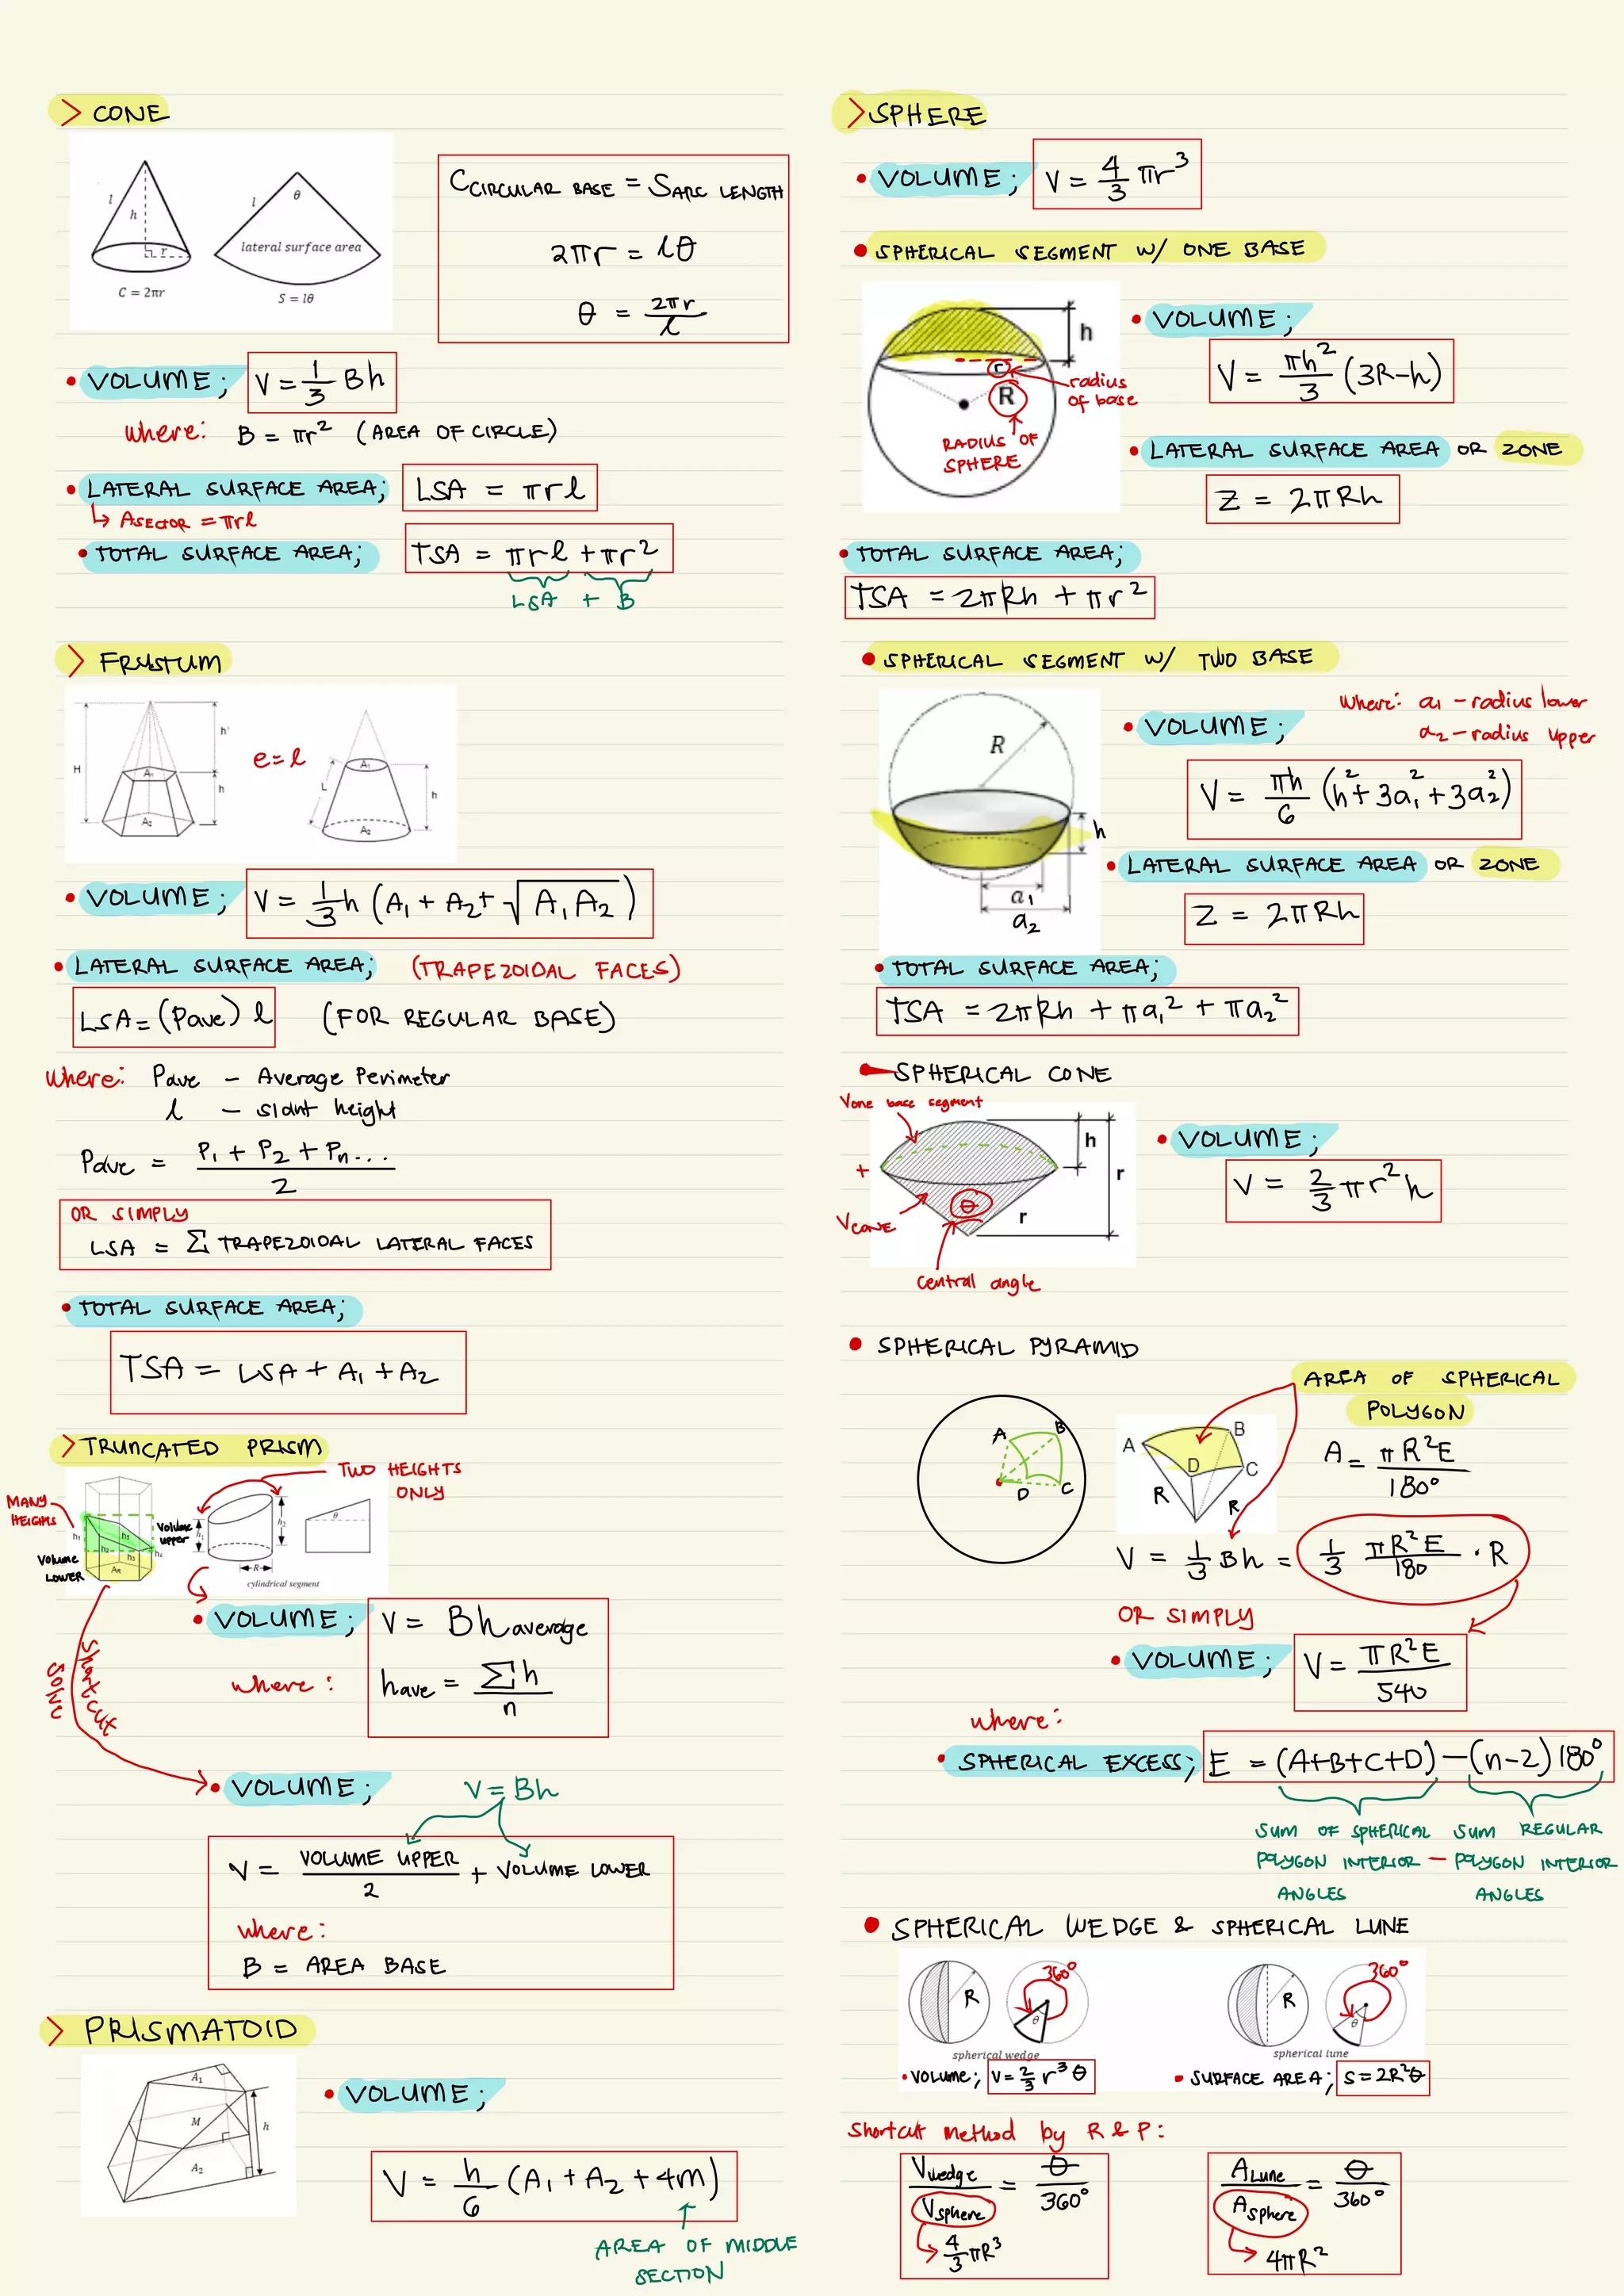 > CONE
l
h
r
C = 2πr
l
θ
lateral surface area
S = lθ
C CIRCULAR BASE = S ARC LENGTH
2πr = lθ
θ = 2πr / l
• VOLUME; V = 1/3 Bh
where: B = πr² (AREA OF CIRCLE)
• LATERAL SURFACE AREA; LSA = πrl
↳ A SECTOR = πrl
• TOTAL SURFACE AREA; TSA = πrl + πr²
LSA + B
> FRUSTUM
H
h'
h
A₁
A₂
e = l
L
A₁
A₂
h
• VOLUME; V = 1/3 h (A₁ + A₂ + √A₁A₂)
• LATERAL SURFACE AREA; (TRAPEZOIDAL FACES)
LSA = (Pave) l (FOR REGULAR BASE)
where: Pave – Average Perimeter
l – slant height
Pave = P₁ + P₂ + Pn... / 2
OR SIMPLY
LSA = Σ TRAPEZOIDAL LATERAL FACES
• TOTAL SURFACE AREA;
TSA = LSA + A₁ + A₂
> TRUNCATED PRISM
TWO HEIGHTS
ONLY
MANY
HEIGHTS
Volume
upper
Volume
LOWER
h₁
h₂
h₃
h₄
h₅
h₁
h₂
R
θ
cylindrical segment
• VOLUME; V = Bh average
where: have = Σh / n
Shortcut
Solve
• VOLUME; V = Bh
V = VOLUME UPPER / 2 + VOLUME LOWER
where:
B = AREA BASE
> PRISMATOID
A₁
M
h
A₂
• VOLUME;
V = h/6 (A₁ + A₂ + 4M)
AREA OF MIDDLE
SECTION
> SPHERE
• VOLUME; V = 4/3 πr³
• SPHERICAL SEGMENT W/ ONE BASE
h
r
R
radius
of base
RADIUS OF
SPHERE
• VOLUME;
V = πh²/3 (3R-h)
• LATERAL SURFACE AREA OR ZONE
Z = 2πRh
• TOTAL SURFACE AREA;
TSA = 2πRh + πr²
• SPHERICAL SEGMENT W/ TWO BASE
R
h
a₁
a₂
where: a₁ – radius lower
a₂ – radius upper
• VOLUME;
V = πh/6 (h² + 3a₁² + 3a₂²)
• LATERAL SURFACE AREA OR ZONE
Z = 2πRh
• TOTAL SURFACE AREA;
TSA = 2πRh + πa₁² + πa₂²
• SPHERICAL CONE
Vone base segment
+
VCONE
θ
h
r
r
central angle
• VOLUME;
V = 2/3 πr²h
• SPHERICAL PYRAMID
A
B
C
D
A
B
C
D
R
R
AREA OF SPHERICAL
POLYGON
A = πR²E / 180°
V = 1/3 Bh = 1/3 πR²E/180 · R
OR SIMPLY
• VOLUME; V = πR²E / 540
where:
• SPHERICAL EXCESS; E = (A+B+C+D) – (n-2)180°
SUM OF SPHERICAL POLYGON INTERIOR ANGLES – SUM REGULAR POLYGON INTERIOR ANGLES
• SPHERICAL WEDGE & SPHERICAL LUNE
R
360°
θ
spherical wedge
R
360°
θ
spherical lune
• VOLUME; V = 2/3 r³θ
• SURFACE AREA; S = 2R²θ
Shortcut method by R & P:
Vwedge / Vsphere = θ / 360°
↳ 4/3 πR³
ALune / Asphere = θ / 360°
↳ 4πR²